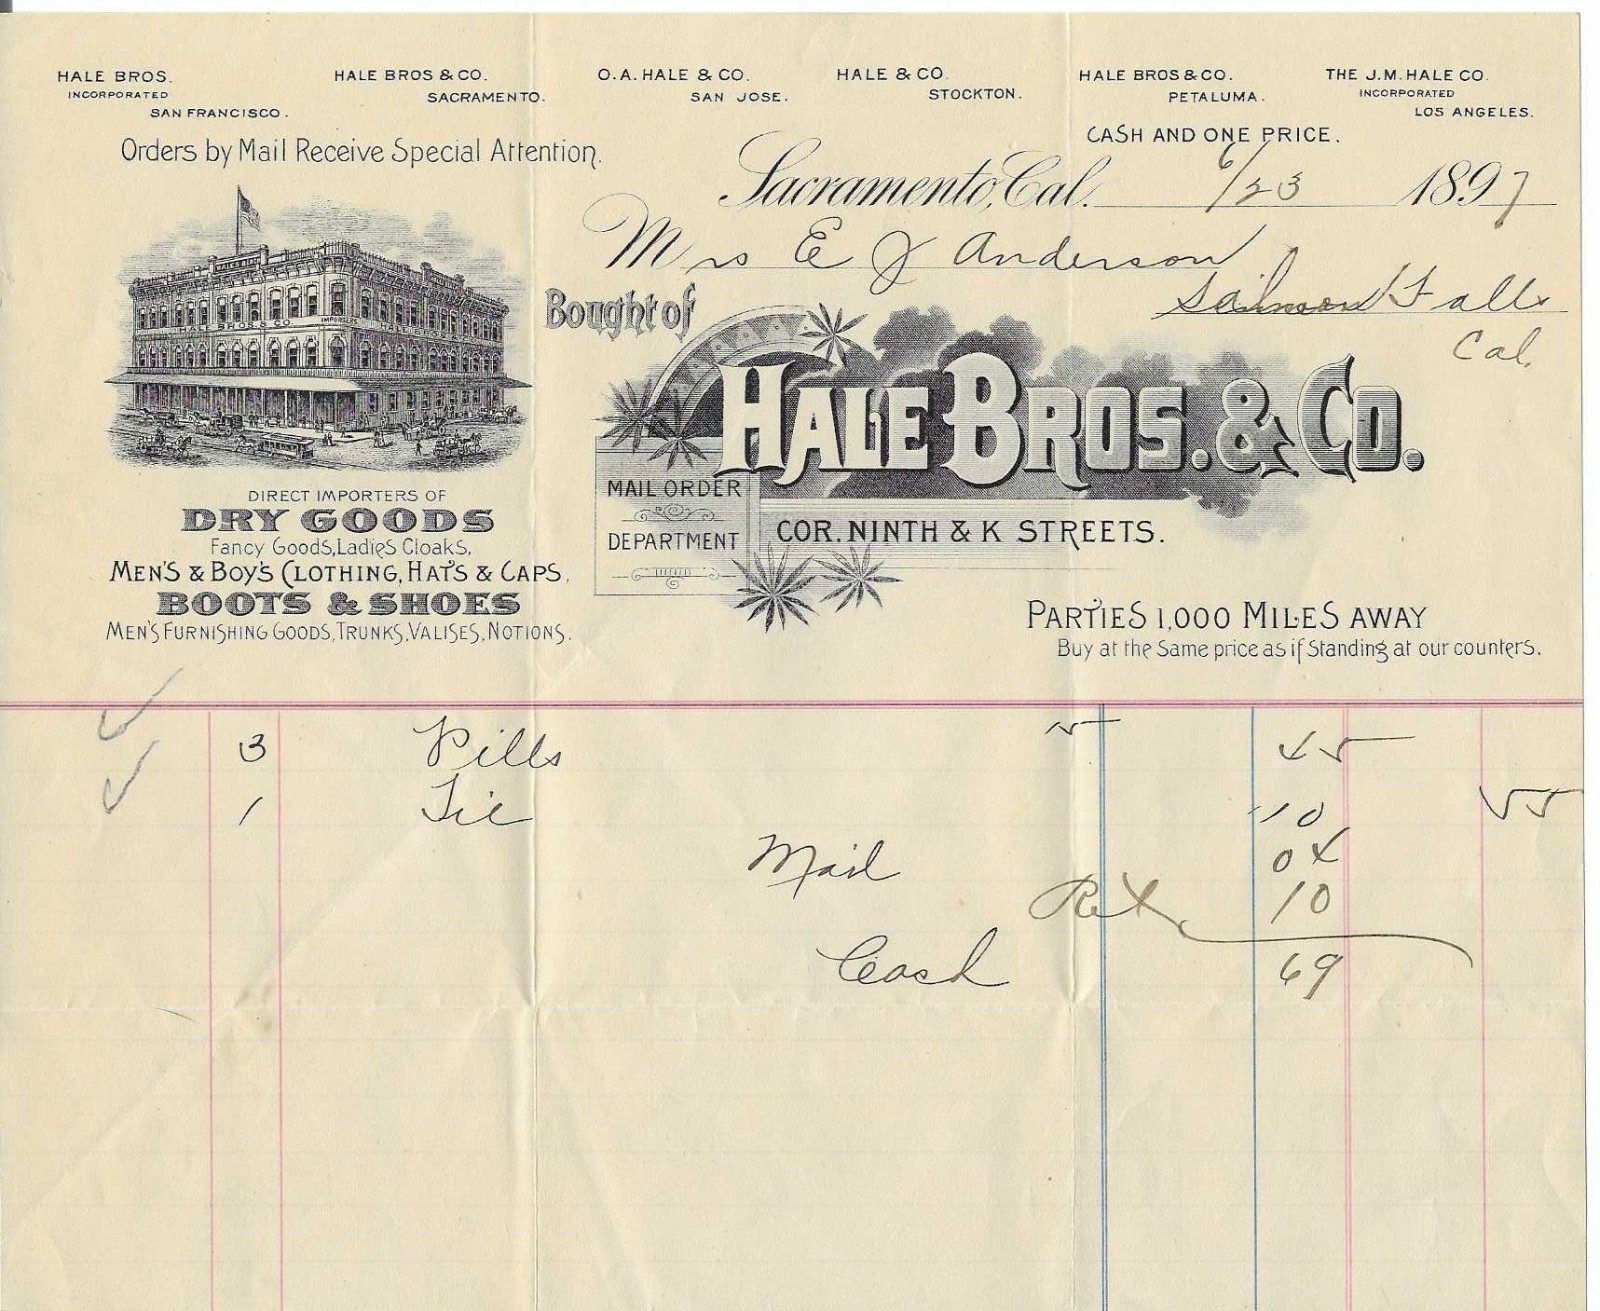 HALE BROS. INCORPORATED SAN FRANCISCO.
HALE BROS & CO. SACRAMENTO.
O.A. HALE & CO. SAN JOSE.
HALE & CO. STOCKTON.
HALE BROS & CO. PETALUMA.
THE J.M. HALE CO. INCORPORATED LOS ANGELES.
Orders by Mail Receive Special Attention.
CASH AND ONE PRICE.
Sacramento, Cal. 6/23 1897
Mrs E J Anderson
Salmon Falls
Cal.
Bought of
HALE BROS. & CO.
HALE BROS & CO
MAIL ORDER
DEPARTMENT
COR. NINTH & K STREETS.
DIRECT IMPORTERS OF
DRY GOODS
Fancy Goods, Ladies Cloaks,
MEN'S & BOY'S CLOTHING, HATS & CAPS,
BOOTS & SHOES
MEN'S FURNISHING GOODS, TRUNKS, VALISES, NOTIONS.
PARTIES 1,000 MILES AWAY
Buy at the Same price as if Standing at our counters.
3 Pills 15 45
1 Tie 10 55
Mail 04
Ret 10
Cash 69